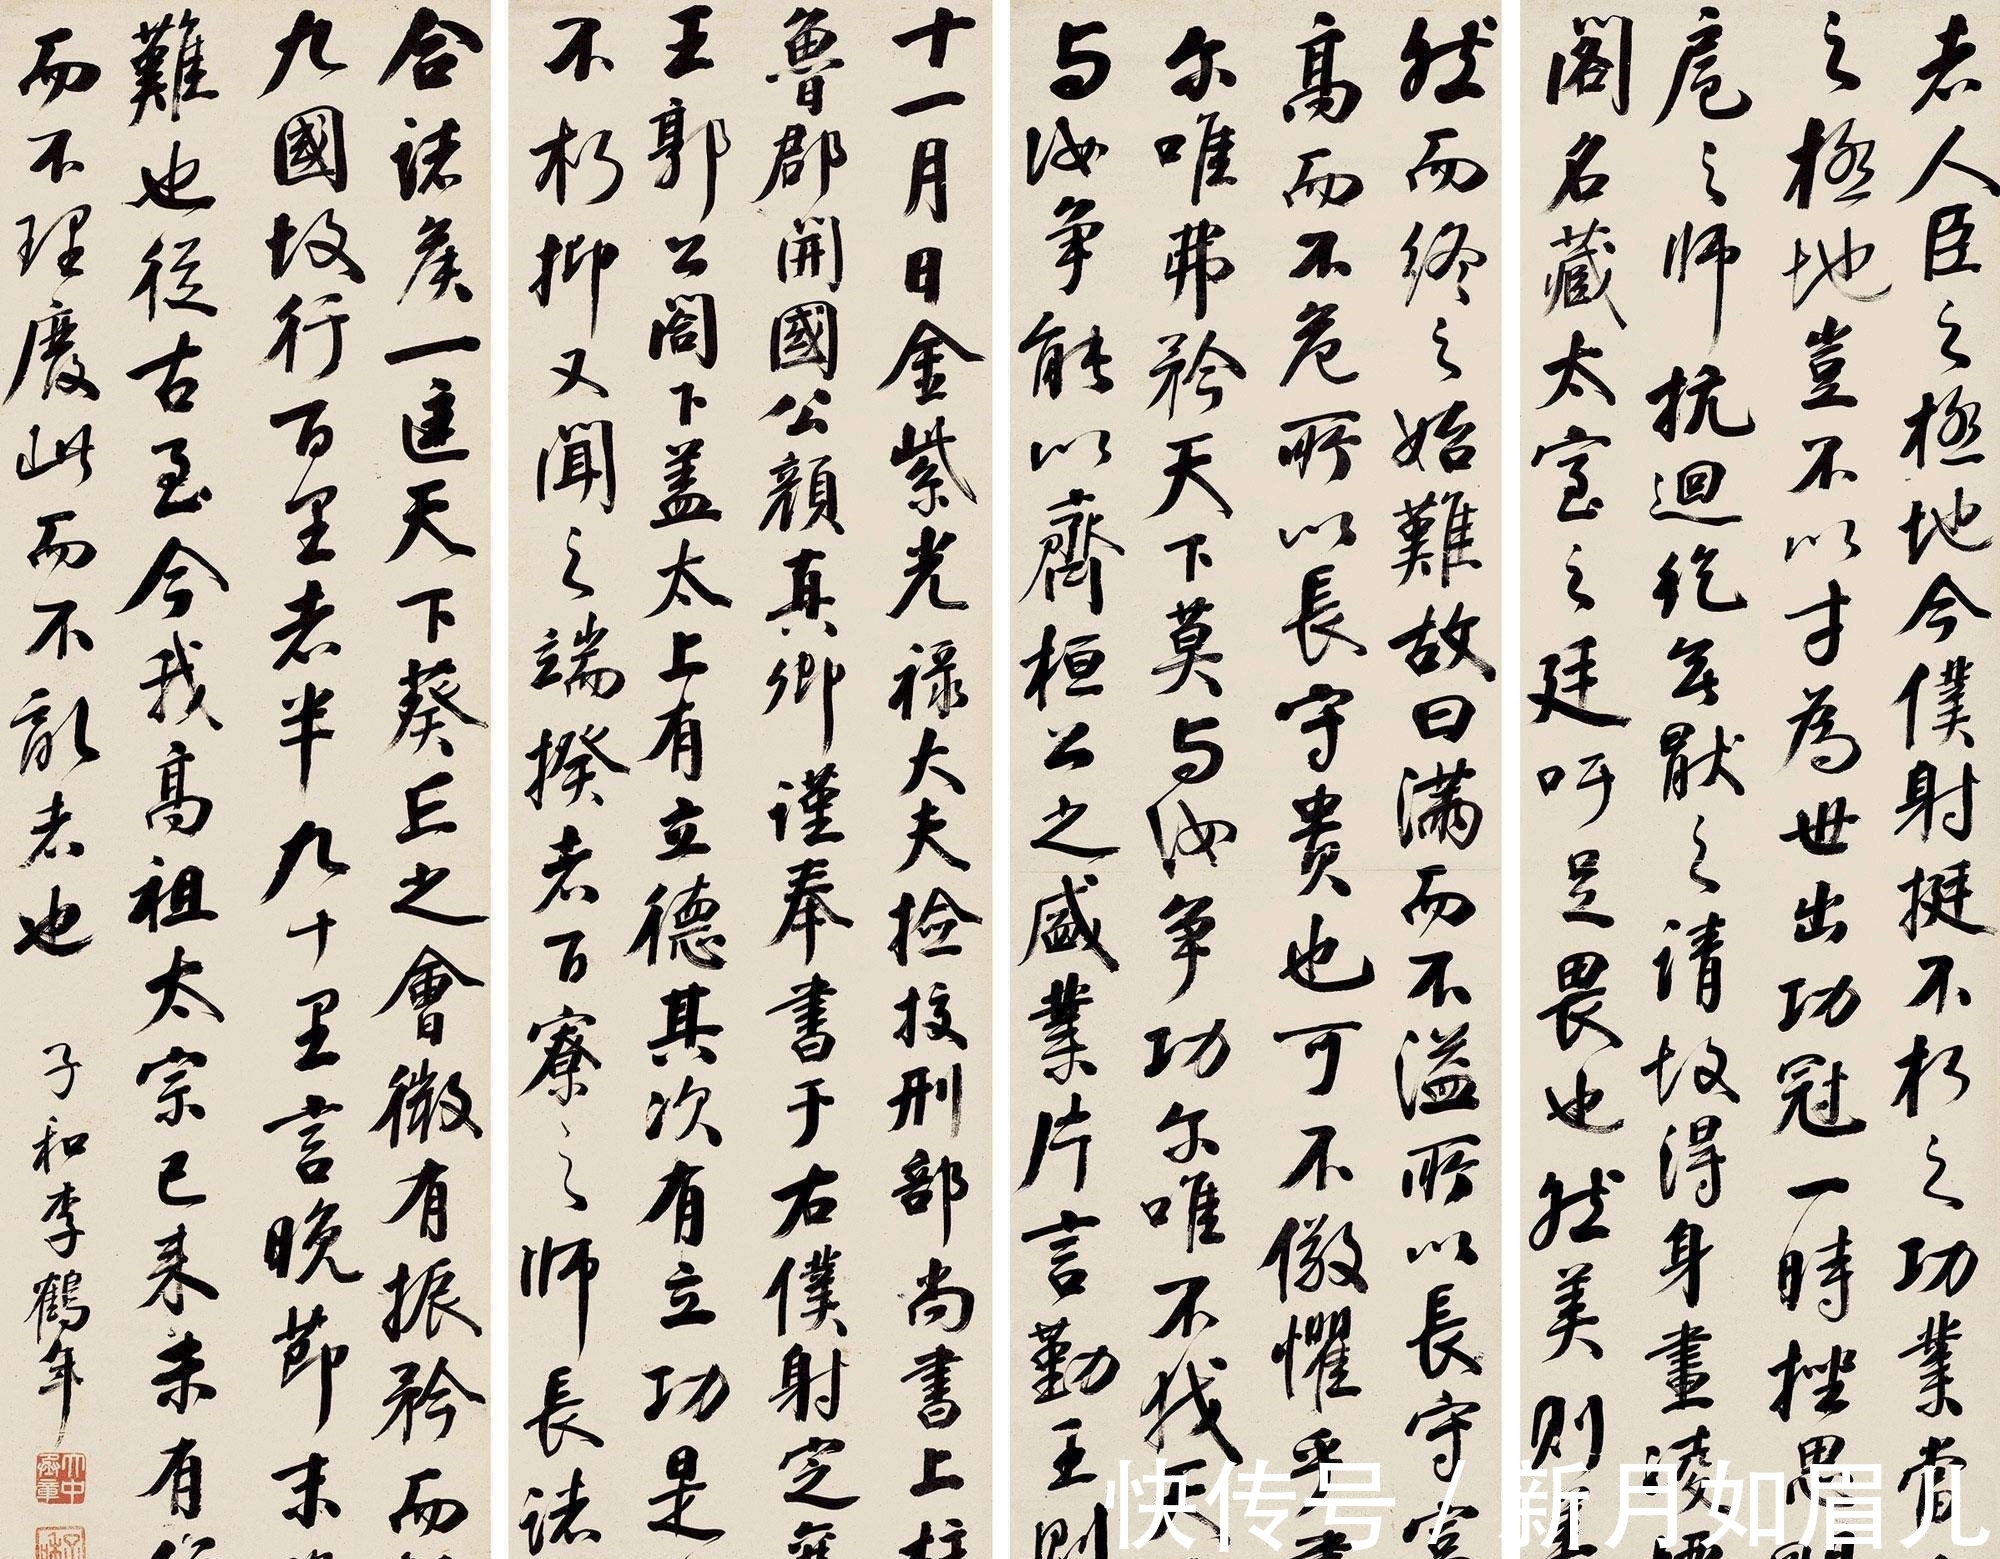 者人臣之極地今僕射挺不朽之功業當
之極地豈不以才為世出功冠一時挫思明
扈之师抗迴纥無猒之請故得身畫凌煙
阁名藏太室之廷吁足畏也然美則美
然而终之始難故曰满而不溢所以長守富
高而不危所以長守貴也可不儆懼乎書
尔唯弗矜天下莫与汝争功尔唯不伐天
与汝争能以齊桓公之盛業片言勤王則
十一月日金紫光禄大夫捡挍刑部尚書上柱
魯郡開國公顏真卿謹奉書于右僕射定襄
王郭公閤下盖太上有立德其次有立功是
不朽抑又聞之端揆者百寮之师長諸
合諸矦一匡天下葵丘之會微有振矜而
九國故行百里者半九十里言晚節末路
難也從古至今我高祖太宗已来未有行
而不理廢此而不亂者也
子和李鶴年
快传号/新月如眉儿